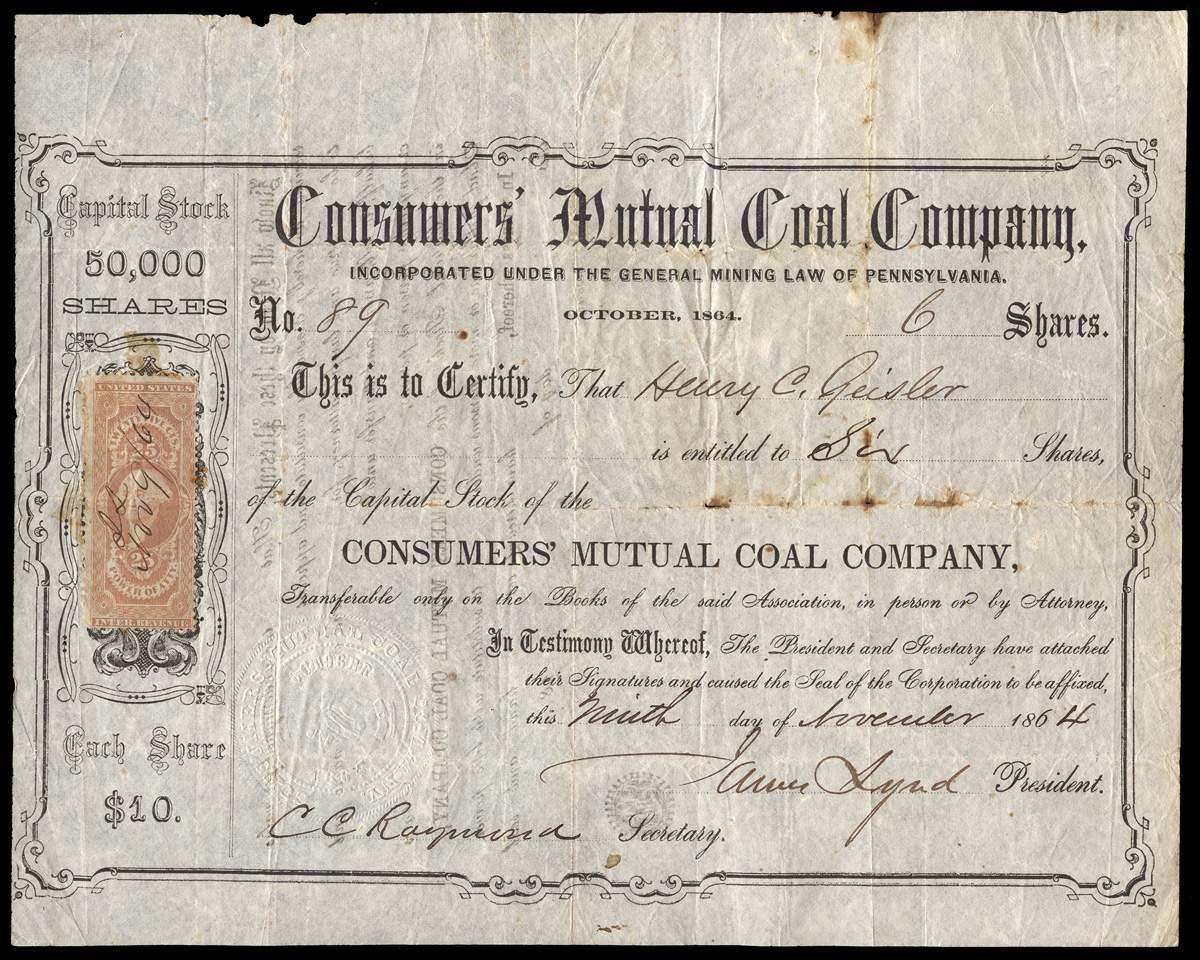 Capital Stock
50,000
SHARES
UNITED STATES
TWENTY FIVE CENTS
25
POWER OF ATTY
INTER. REVENUE
Each Share
$10.
Consumers' Mutual Coal Company.
INCORPORATED UNDER THE GENERAL MINING LAW OF PENNSYLVANIA.
OCTOBER, 1864.
No. 89 6 Shares.
This is to Certify, That Henry C. Geisler
is entitled to Six Shares,
of the Capital Stock of the
CONSUMERS' MUTUAL COAL COMPANY,
Transferable only on the Books of the said Association, in person or by Attorney,
In Testimony Whereof, The President and Secretary have attached
their Signatures and caused the Seal of the Corporation to be affixed,
this Ninth day of November 1864
James Lynd President.
C C Raymond Secretary.